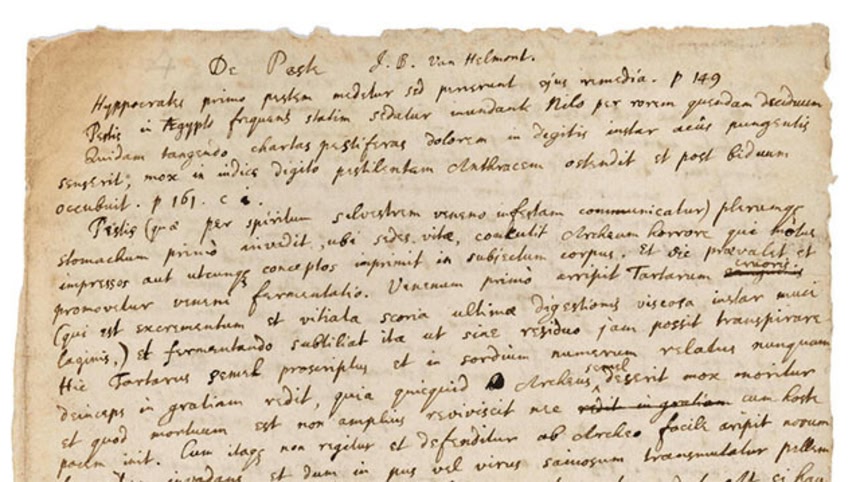 De Peste J. B. Van Helmont.
Hyppocrates primo pestem medetur sed perierunt ejus remedia. p 149
Pestis in Ægypto frequens statim sedatur inundante Nilo per rorem quendam deciduum
Quidam tangendo chartas pestiferas dolorem in digitis instar acûs pungentis
senserit, mox in indice digito pestilentem Anthracem ostendit et post biduum
occubuit. p 161. c
Pestis (quæ per spiritum silvestrem veneno infestam communicatur) plerumqȝ
stomachum primò invedit, ubi sedes vitæ, concutit Archeum horrore qui motus
impressos aut utcunqȝ conceptos imprimit in subjectum corpus. Et sic prævalet et
promovetur veneni fermentatio. Venenum primò arripit Tartarum sanguinis cruoris
(qui est excrementum et vitiata scoria ultimæ digestionis viscosa instar muci
laginis,) et fermentando subtiliat ita ut sine residuo jam possit transpirare
Hic Tartarus semel proscriptus et in sordium numerum relatus nunquam
deinceps in gratiam redit, quia quicquid Archeus semel deserit mox moritur
et quod mortuum est non amplius reviviscit nec redit in gratiam cum hoste
pacem init. Cum itaqȝ non regitur et defenditur ab Archeo facile aripit novum
invadens et dum in pus vel virus saniosum transmutatur pellem